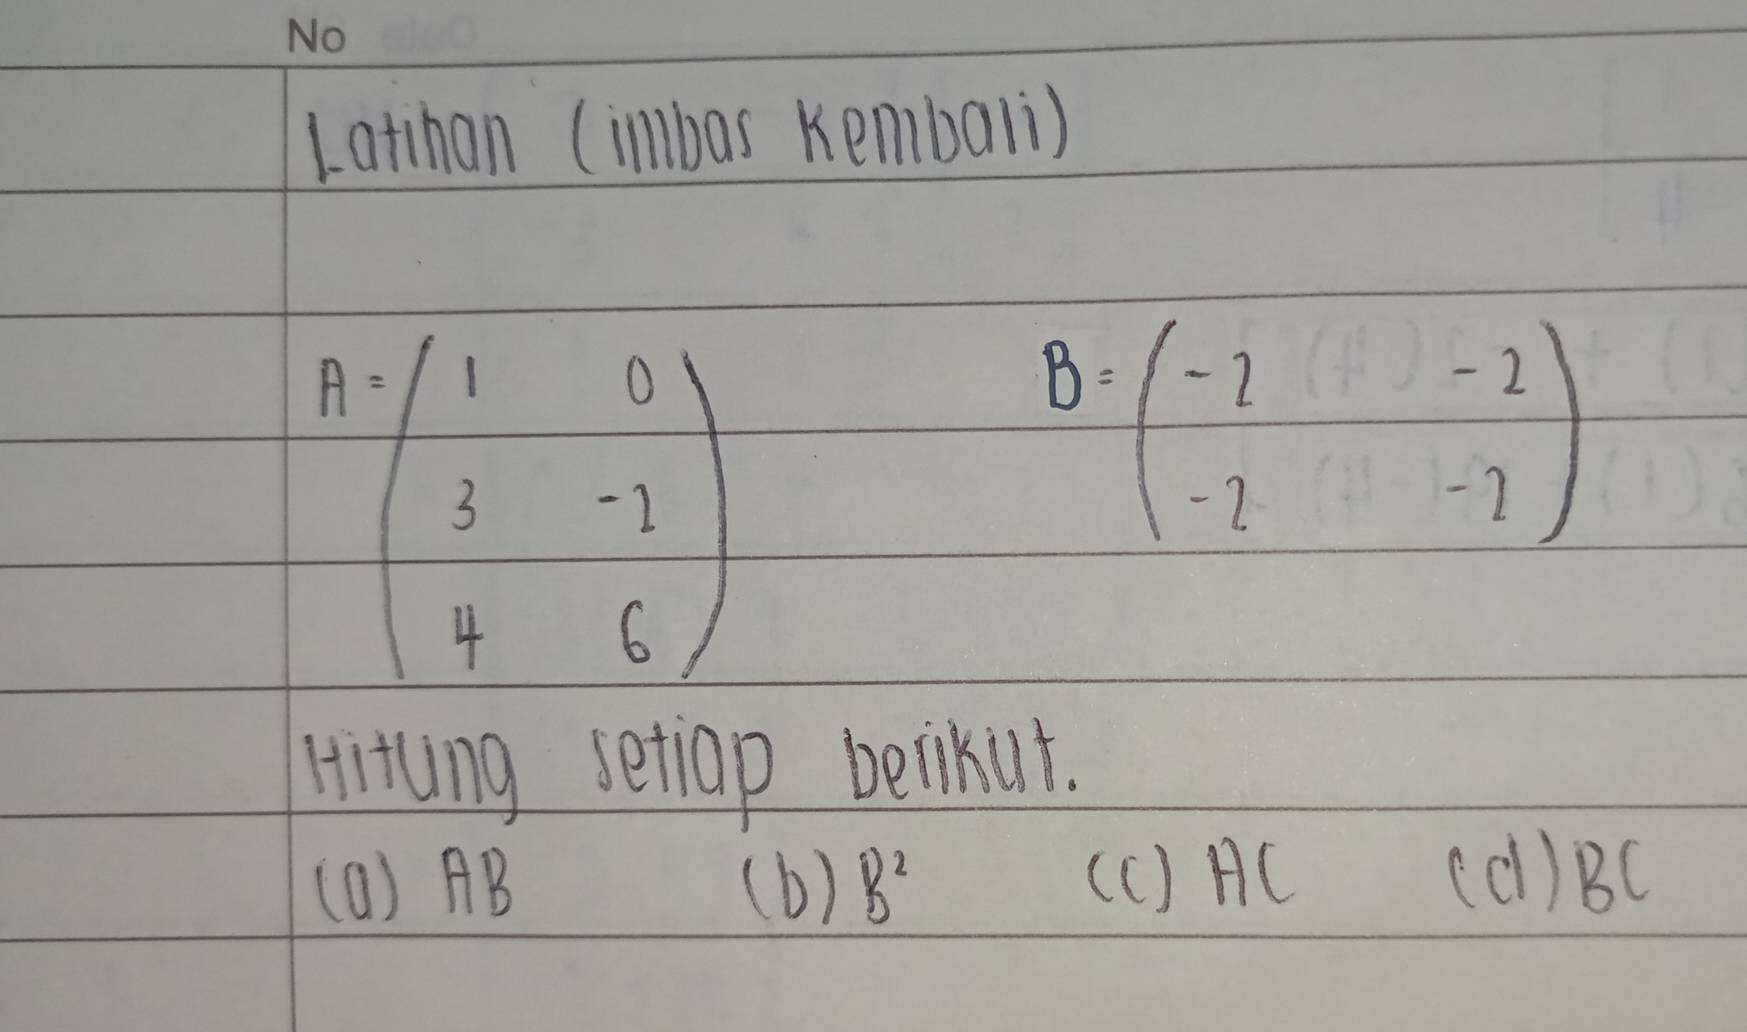 No
Latihan (imbas kembali)
A = ( 1 0 B = ( -2 -2 )
3 -2 -2 -2
4 6 )
Hitung setiap berikut.
(a) AB (b) B² (c) AC (d) BC